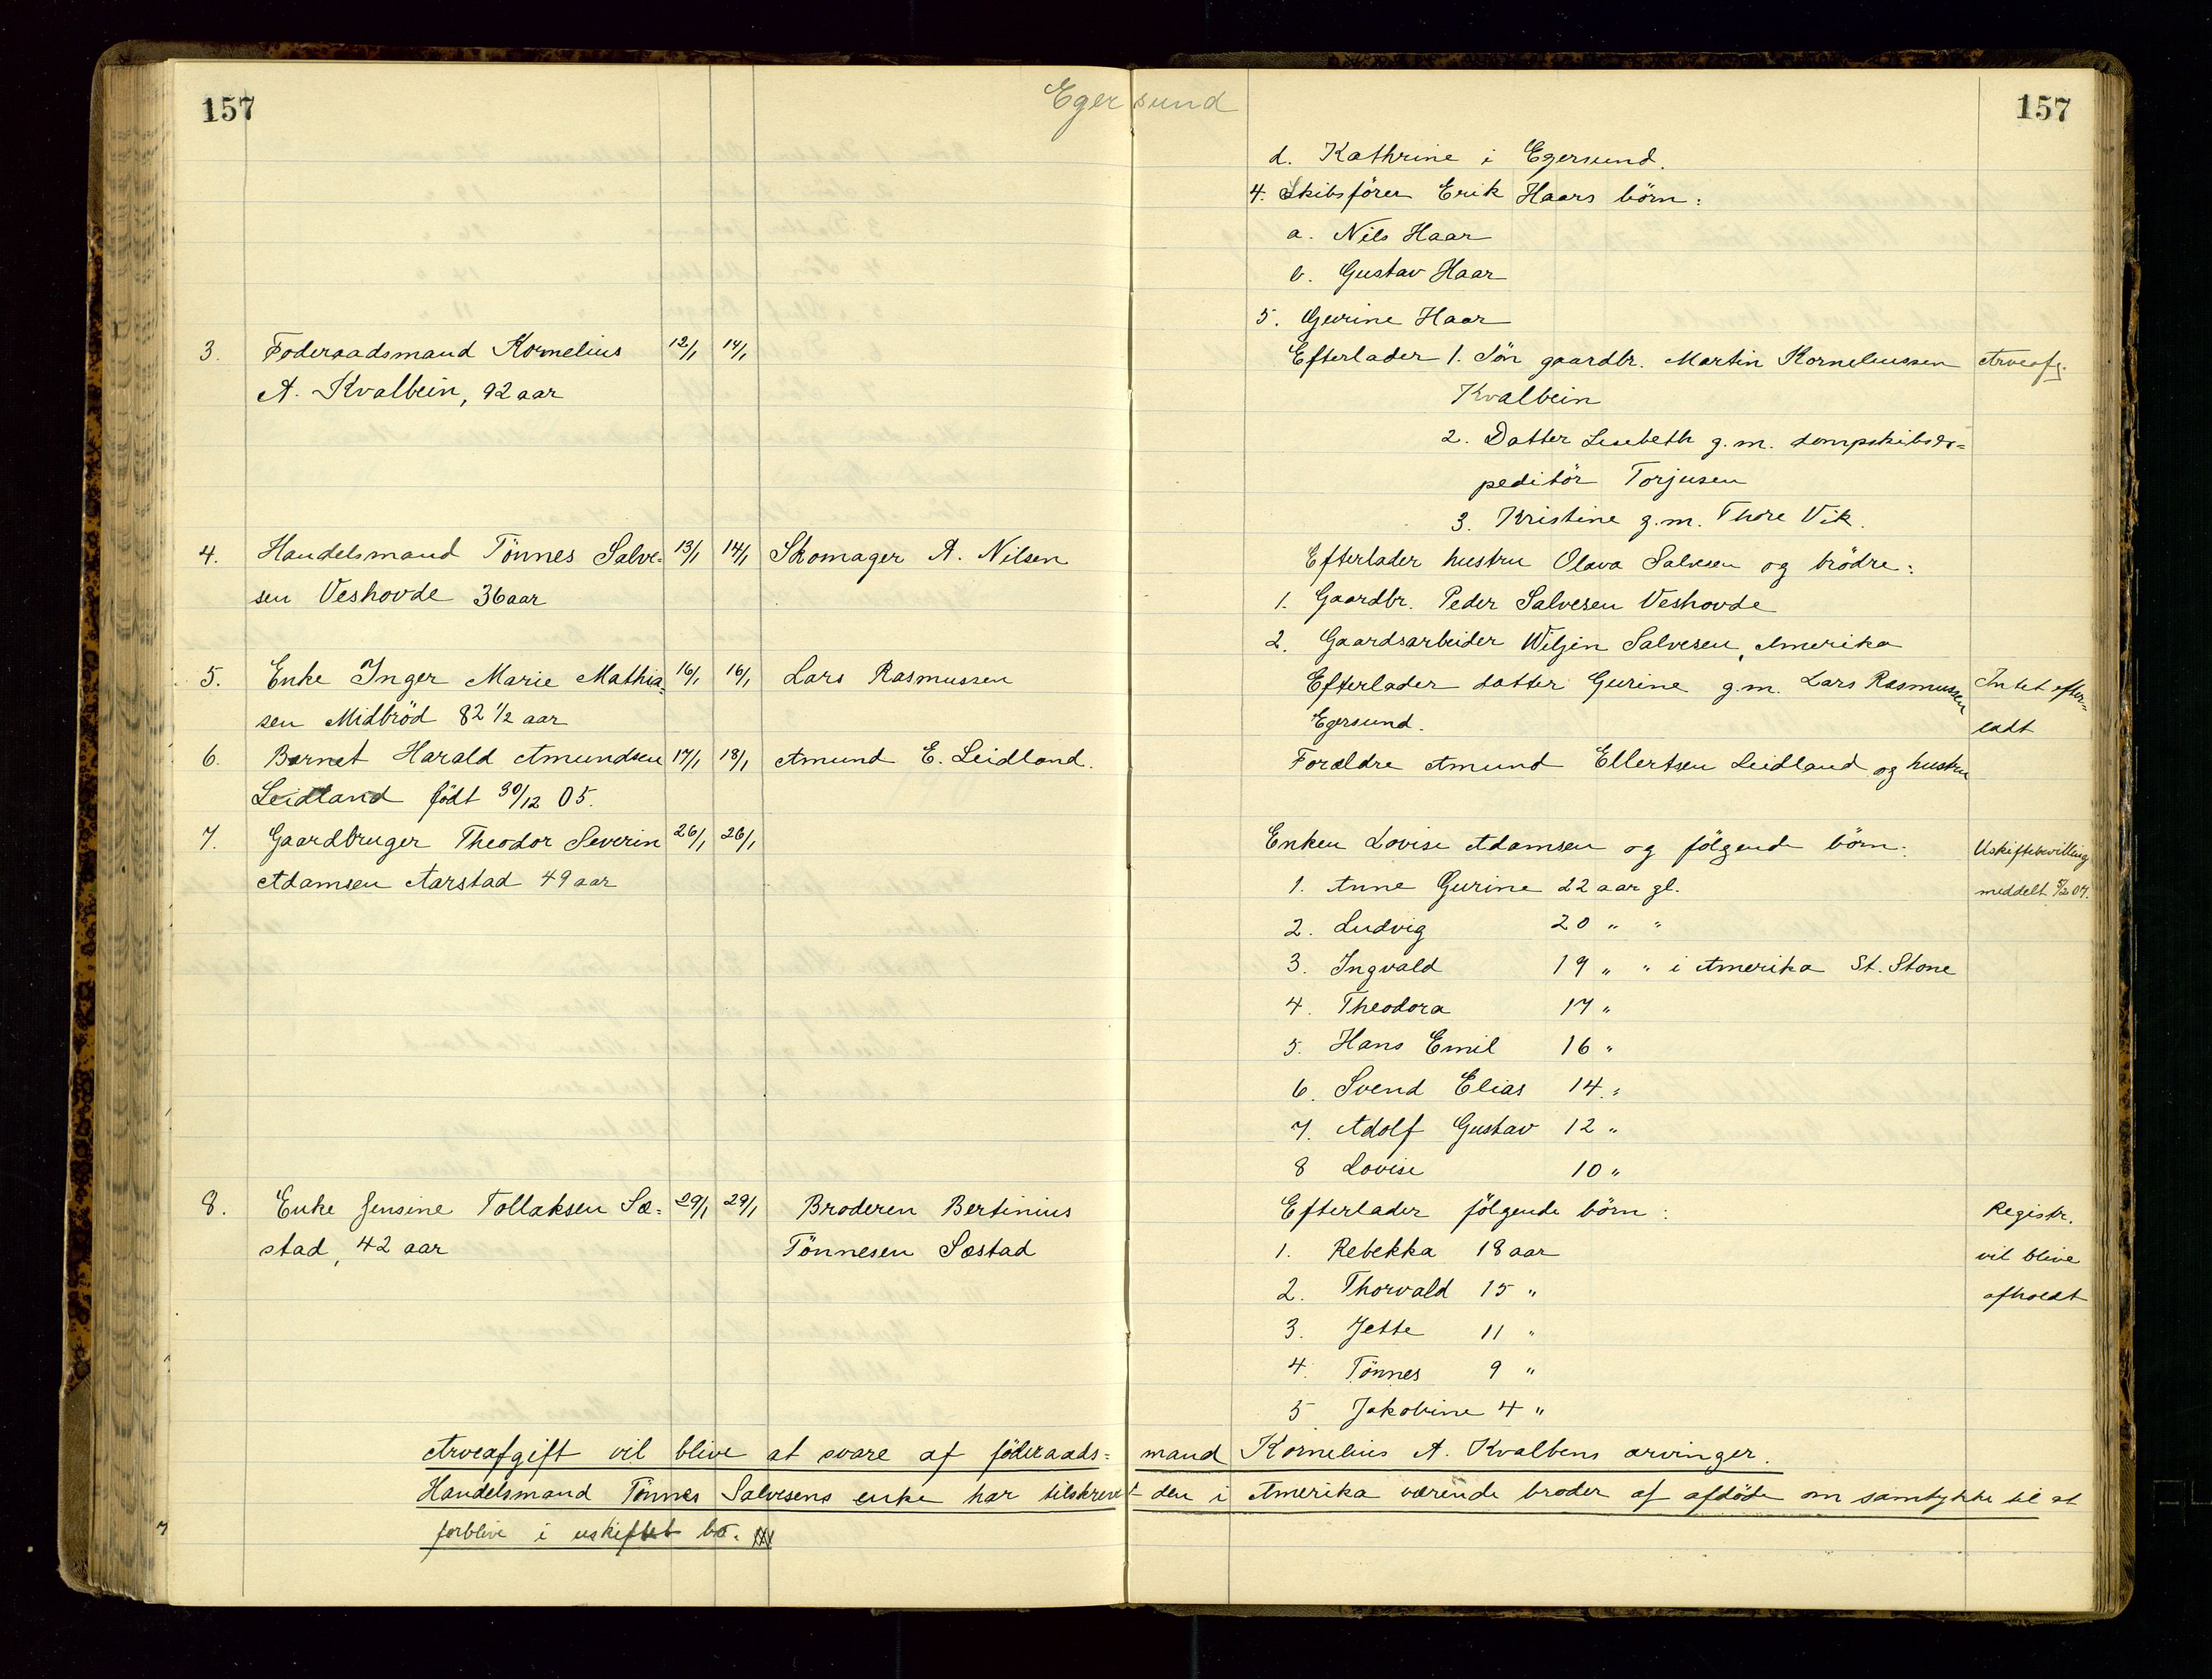 157 Egersund 157
d. Kathrine i Egersund.
4. Skibsfører Erik Haars börn:
a. Nils Haar
b. Gustav Haar
5. Gurine Haar
3. Föderaadsmand Kornelius 12/1 14/1 Efterlader 1. Sön gaardbr. Martin Korneliussen Arveafg.
A. Kvalbein, 92 aar Kvalbein
2. Datter Lisebeth g.m. dampskibsex=
peditör Torjusen
3. Kristine g.m. Thore Vik.
4. Handelsmand Tönnes Salve= 13/1 14/1 Skomager A. Nilsen Efterlader hustru Olava Salvesen og brödre:
sen Veshovde 36 aar 1. Gaardbr. Peder Salvesen Veshovde
2. Gaardsarbeider Wiljen Salvesen, Amerika
5. Enke Inger Marie Mathia= 16/1 16/1 Lars Rasmussen Efterlader datter Gurine g.m. Lars Rasmussen Intet efter=
sen Midbröd 82 1/2 aar Egersund. ladt
6. Barnet Harald Amundsen 17/1 18/1 Amund E. Leidland. Forældre Amund Ellertsen Leidland og hustru
Leidland födt 30/12 05.
7. Gaardbruger Theodor Severin 26/1 26/1 Enken Lovise Adamsen og fölgende börn: Uskiftebevilling
Adamsen Aarstad 49 aar 1. Anne Gurine 22 aar gl. meddelt 5/2 07.
2. Ludvig 20 " "
3. Ingvald 19 " " i Amerika St. Stone
4. Theodora 17 "
5. Hans Emil 16 "
6. Svend Elias 14 "
7. Adolf Gustav 12 "
8 Lovise 10 "
8. Enke Jensine Tollaksen Sæ= 29/1 29/1 Broderen Bertinius Efterlader fölgende börn: Registr.
stad, 42 aar Tönnesen Sæstad 1. Rebekka 18 aar vil blive
2. Thorvald 15 " afholdt
3. Jette 11 "
4. Tönnes 9 "
5 Jakobine 4 "
Arveafgift vil blive at svare af föderaads= mand Kornelius A. Kvalbens arvinger.
Handelsmand Tönnes Salvesens enke har tilskrevet den i Amerika værende broder af afdöde om samtykke til at
forblive i uskiftet bo.